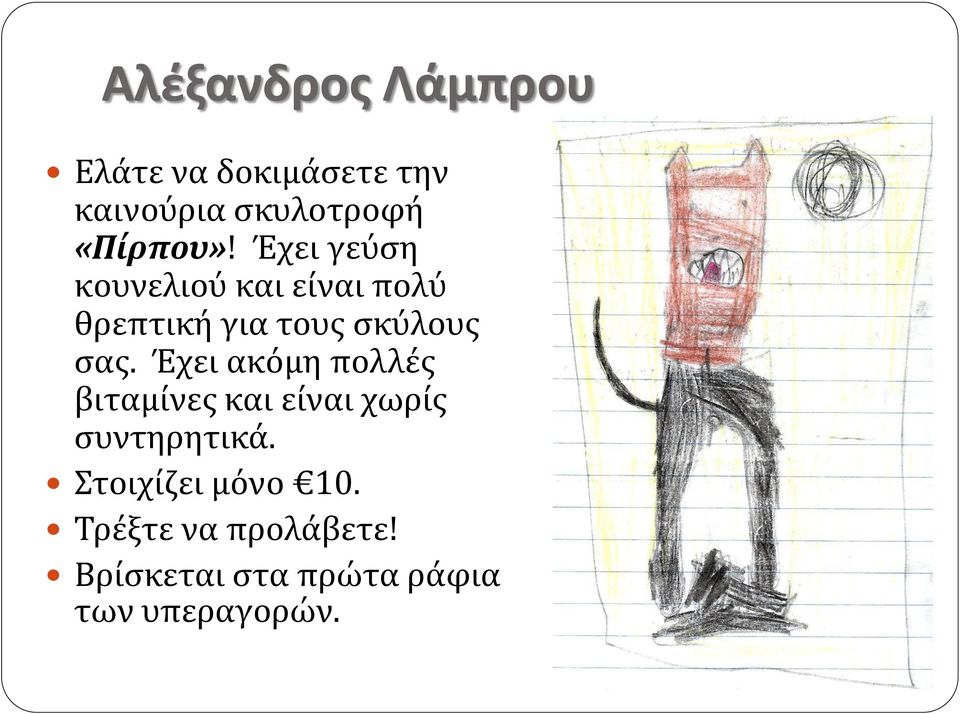 Αλέξανδρος Λάμπρου
• Ελάτε να δοκιμάσετε την
καινούρια σκυλοτροφή
«Πίρπου»! Έχει γεύση
κουνελιού και είναι πολύ
θρεπτική για τους σκύλους
σας. Έχει ακόμη πολλές
βιταμίνες και είναι χωρίς
συντηρητικά.
• Στοιχίζει μόνο €10.
• Τρέξτε να προλάβετε!
• Βρίσκεται στα πρώτα ράφια
των υπεραγορών.